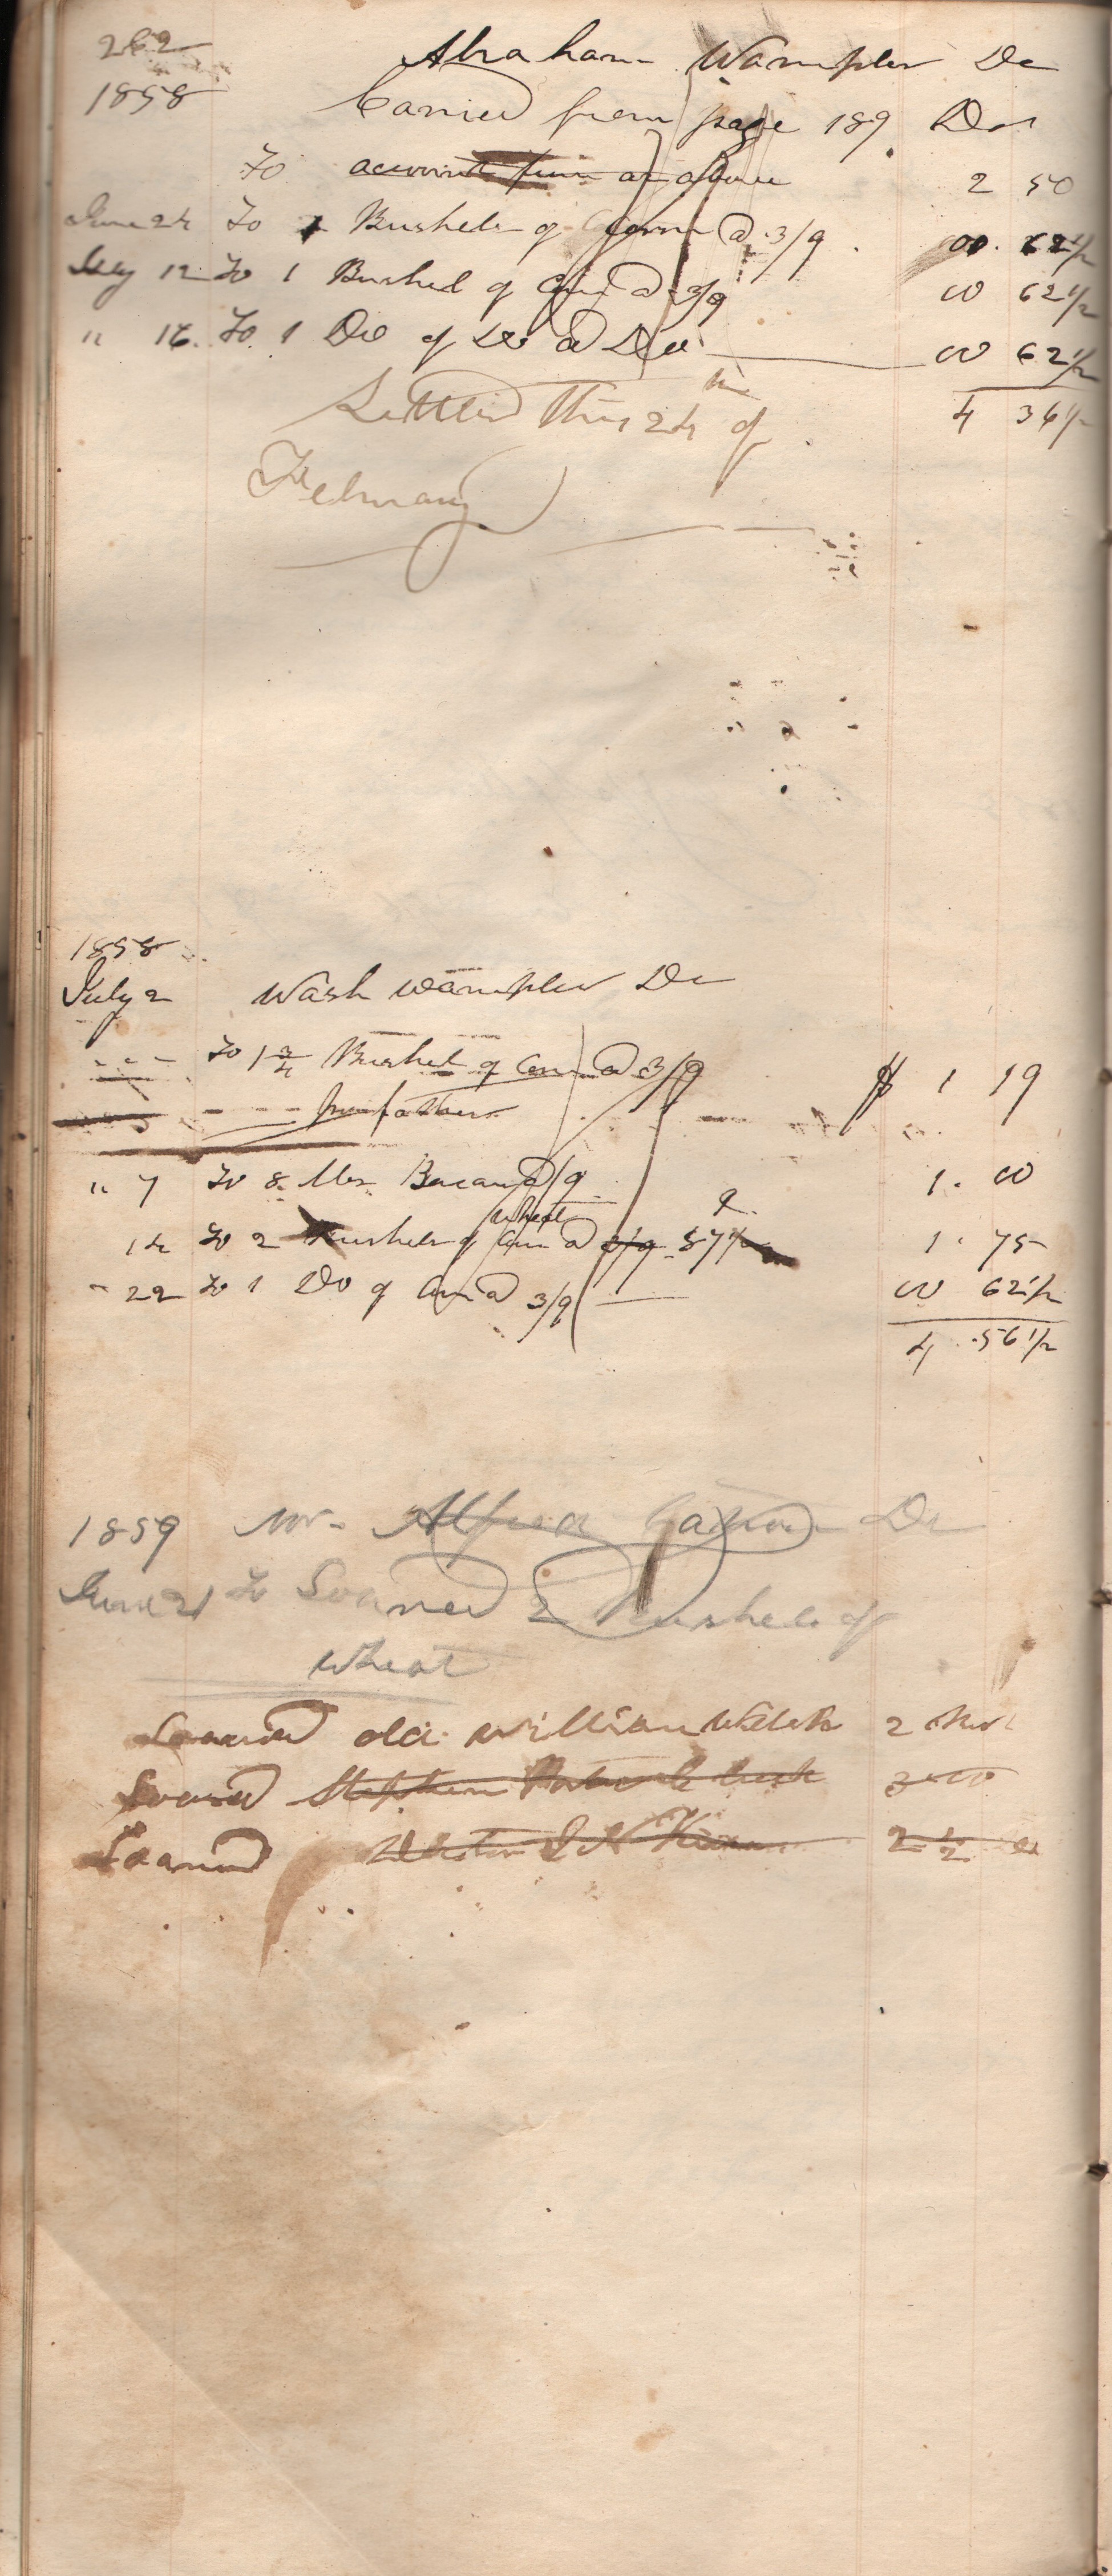 262
Abraham Wampler Dr
1858 Carried from page 189 Dol
To account from as above 2 50
June 24 To 1 Bushels of Corn @ 3/9 00 62 1/2
July 12 To 1 Bushel of Corn @ 3/9 00 62 1/2
" 16 To 1 Do of Do @ Do 00 62 1/2
4 36 1/2
Settled this 24th of
February
1858
July 2 Wash Wampler Dr
To 1 3/4 Bushel of Corn @ 3/9 $ 1 19
from father
" 7 To 8 lbs Bacon @ /9 1. 00
wheat
14 To 2 Bushels of Corn @ 3/9 87 1/2 1. 75
" 22 To 1 Do of Corn @ 3/9 00 62 1/2
4. 56 1/2
1859 Mr Alfred Dr
June 21 To Loaned 2 Bushels of
wheat
Loaned old William 2
Loaned Stephen
Loaned 2 1/2